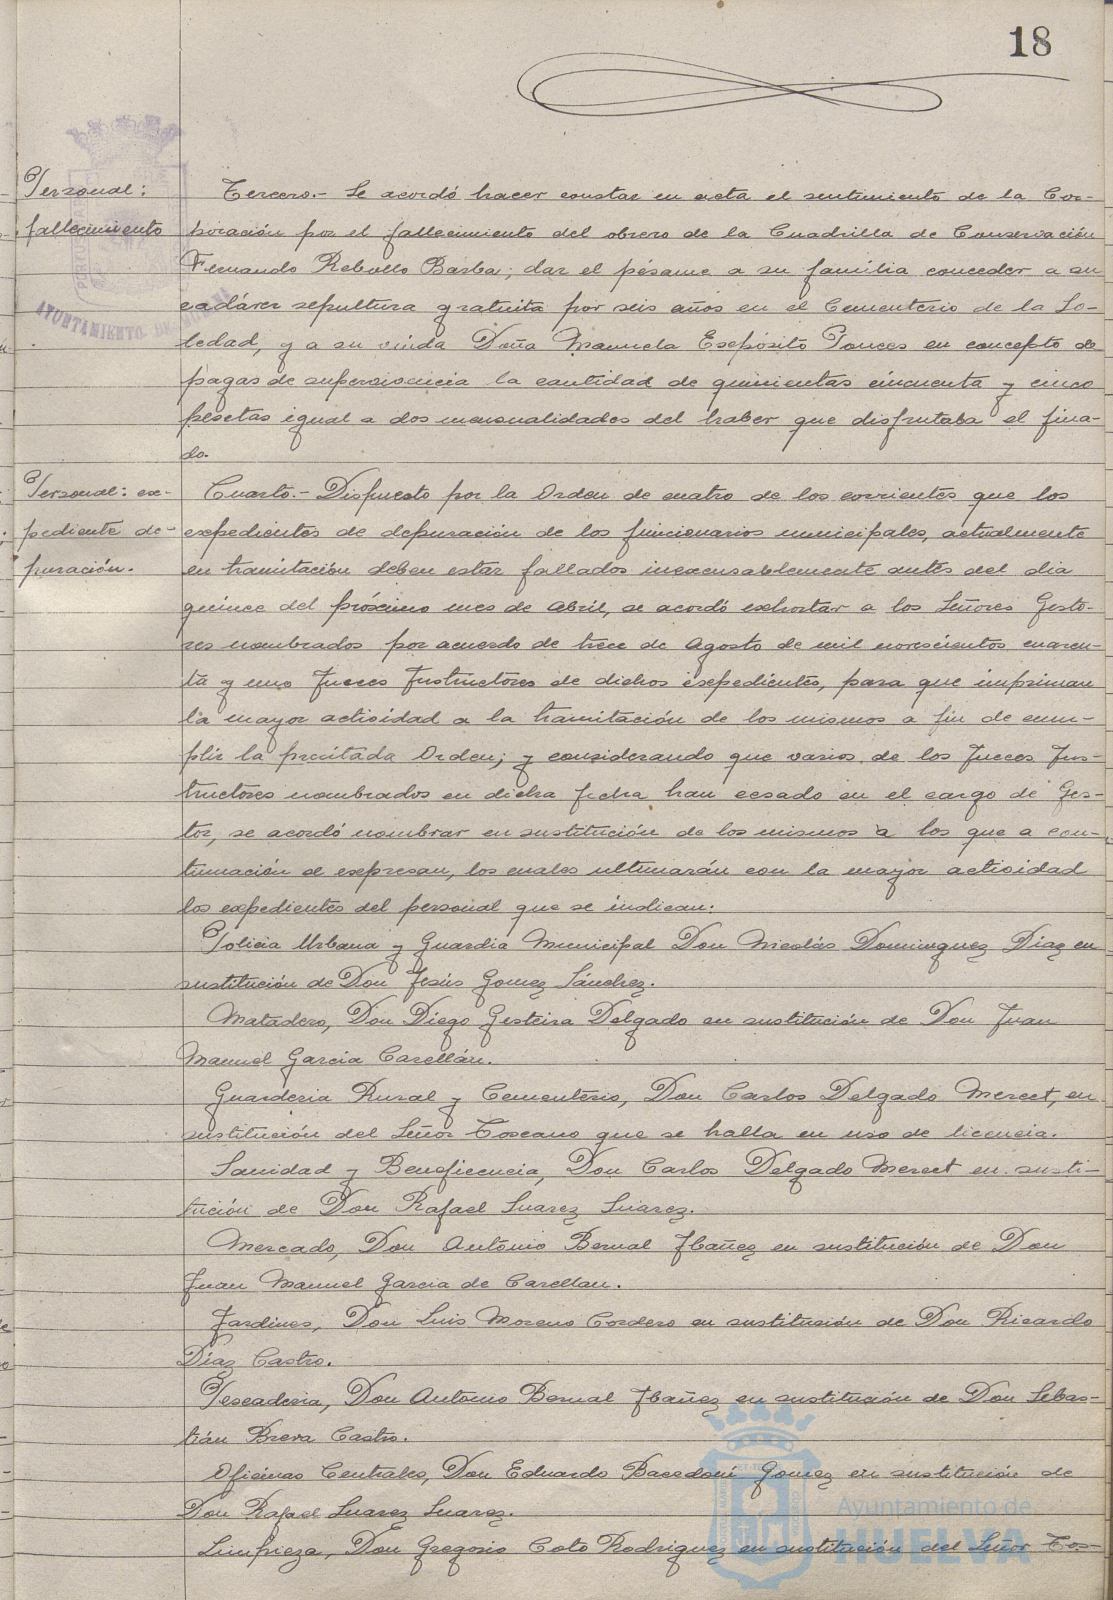 18
Personal:
fallecimiento
Tercero.- Se acordó hacer constar en acta el sentimiento de la Cor-
poración por el fallecimiento del obrero de la Cuadrilla de Conservación
Fernando Rebollo Barba; dar el pésame a su familia conceder a su
cadáver sepultura gratuita por seis años en el Cementerio de la So-
ledad, y a su viuda Doña Manuela Expósito Ponces en concepto de
pagas de supervivencia la cantidad de quinientas cincuenta y cinco
pesetas igual a dos mensualidades del haber que disfrutaba el fina-
do.
Personal: ex-
pediente de-
puración.
Cuarto.- Dispuesto por la Orden de cuatro de los corrientes que los
expedientes de depuración de los funcionarios municipales, actualmente
en tramitación deben estar fallados inexcusablemente antes del dia
quince del próximo mes de Abril, se acordó exhortar a los Señores Gesto-
res nombrados por acuerdo de trece de Agosto de mil novecientos cuaren-
ta y uno Jueces Instructores de dichos expedientes, para que impriman
la mayor actividad a la tramitación de los mismos a fin de cum-
plir la precitada Orden; y considerando que varios de los Jueces Ins-
tructores nombrados en dicha fecha han cesado en el cargo de Ges-
tor, se acordó nombrar en sustitución de los mismos a los que a con-
tinuación se expresan, los cuales ultimarán con la mayor actividad
los expedientes del personal que se indican:
Policia Urbana y Guardia Municipal Don Nicolás Dominguez Diaz en
sustitución de Don Jesús Gomez Sánchez.
Matadero, Don Diego Gesteira Delgado en sustitución de Don Juan
Manuel García Carellán.
Guarderia Rural y Cementerio, Don Carlos Delgado Mercet, en
sustitución del Señor Toscano que se halla en uso de licencia.
Sanidad y Beneficencia, Don Carlos Delgado Mercet en susti-
tución de Don Rafael Suarez Suarez.
Mercado, Don Antonio Bernal Ibañez en sustitución de Don
Juan Manuel Garcia de Carellan.
Jardines, Don Luis Moreno Cordero en sustitución de Don Ricardo
Diaz Castro.
Pescaderia, Don Antonio Bernal Ibañez en sustitución de Don Sebas-
tián Brera Castro.
Oficinas Centrales, Don Eduardo Bacedoni Gomez en sustitución de
Don Rafael Suarez Suarez.
Limpieza, Don Gregorio Coto Rodriguez en sustitución del Señor Tos-
AYUNTAMIENTO DE
Ayuntamiento de
HUELVA